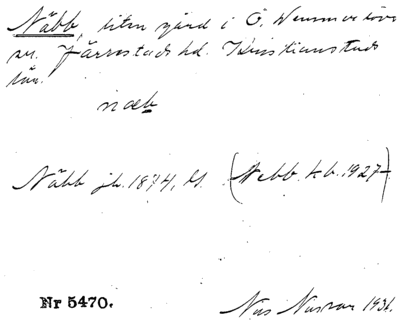 Näbb, liten gård i Ö. Nemmerlöv
sn. Järrestads hd. Kristianstads
län.
næb
Näbb jb. 1874, (Nebb kb. 1927-)
Nr 5470.
Nils 1931.